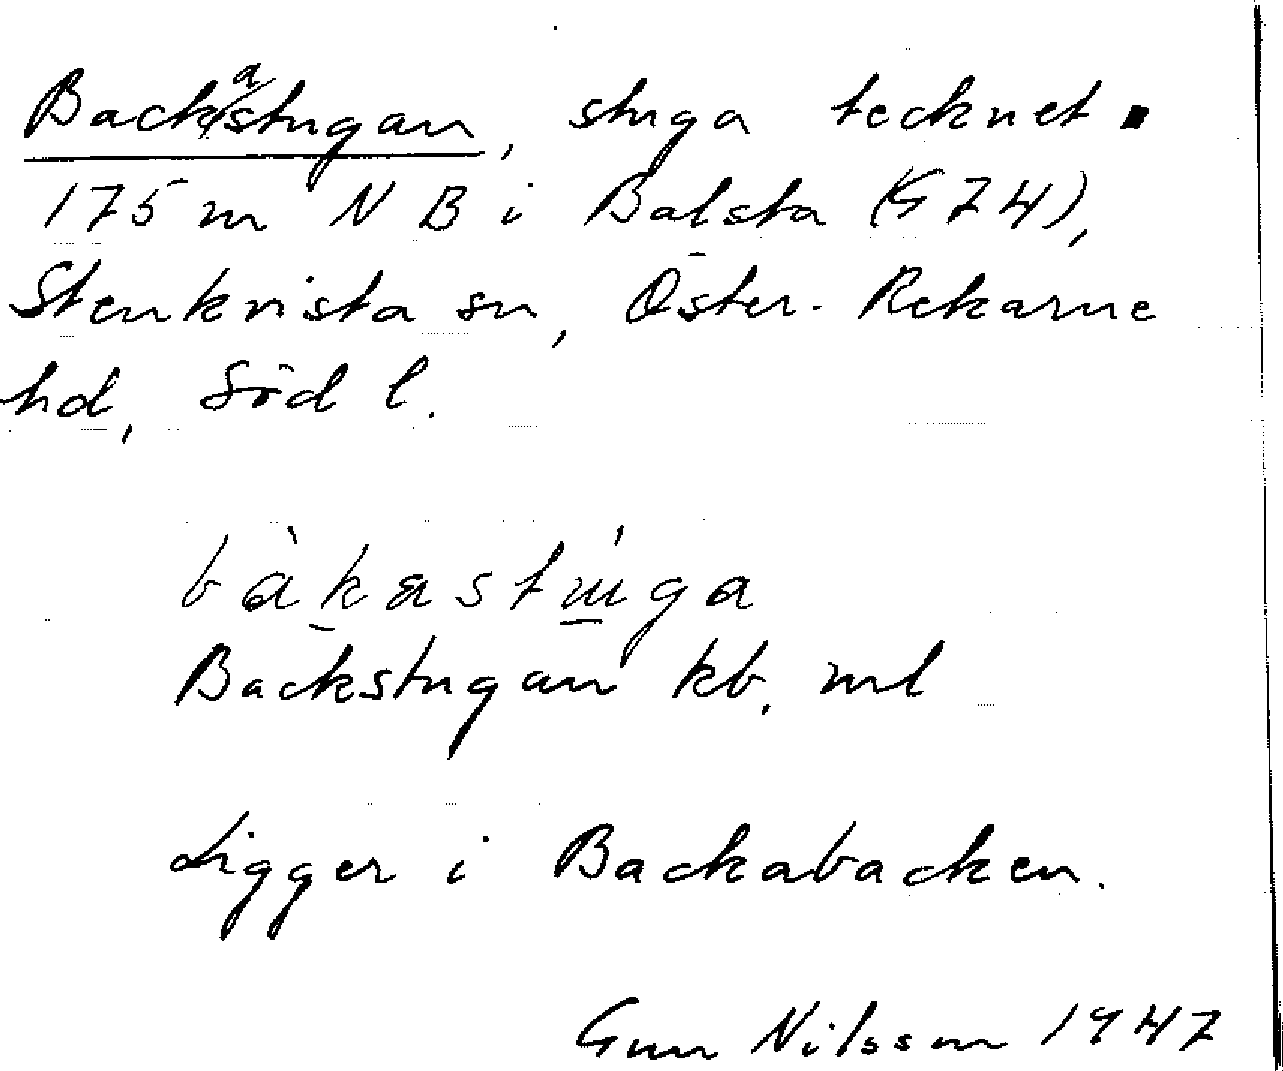 Backastugan, stuga tecknet ▪
175 m N B i Balsta (G 74),
Stenkvista sn, Öster-Rekarne
hd, Söd l.
bàkastúga
Backstugan kb. ml
Ligger i Backabacken.
Gun Nilsson 1947